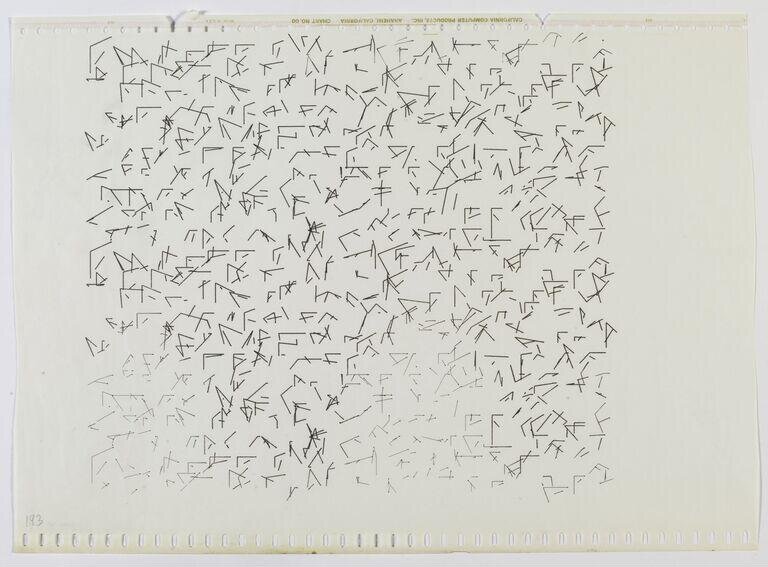 CALIFORNIA COMPUTER PRODUCTS, INC. ANAHEIM, CALIFORNIA CHART NO. 00
193